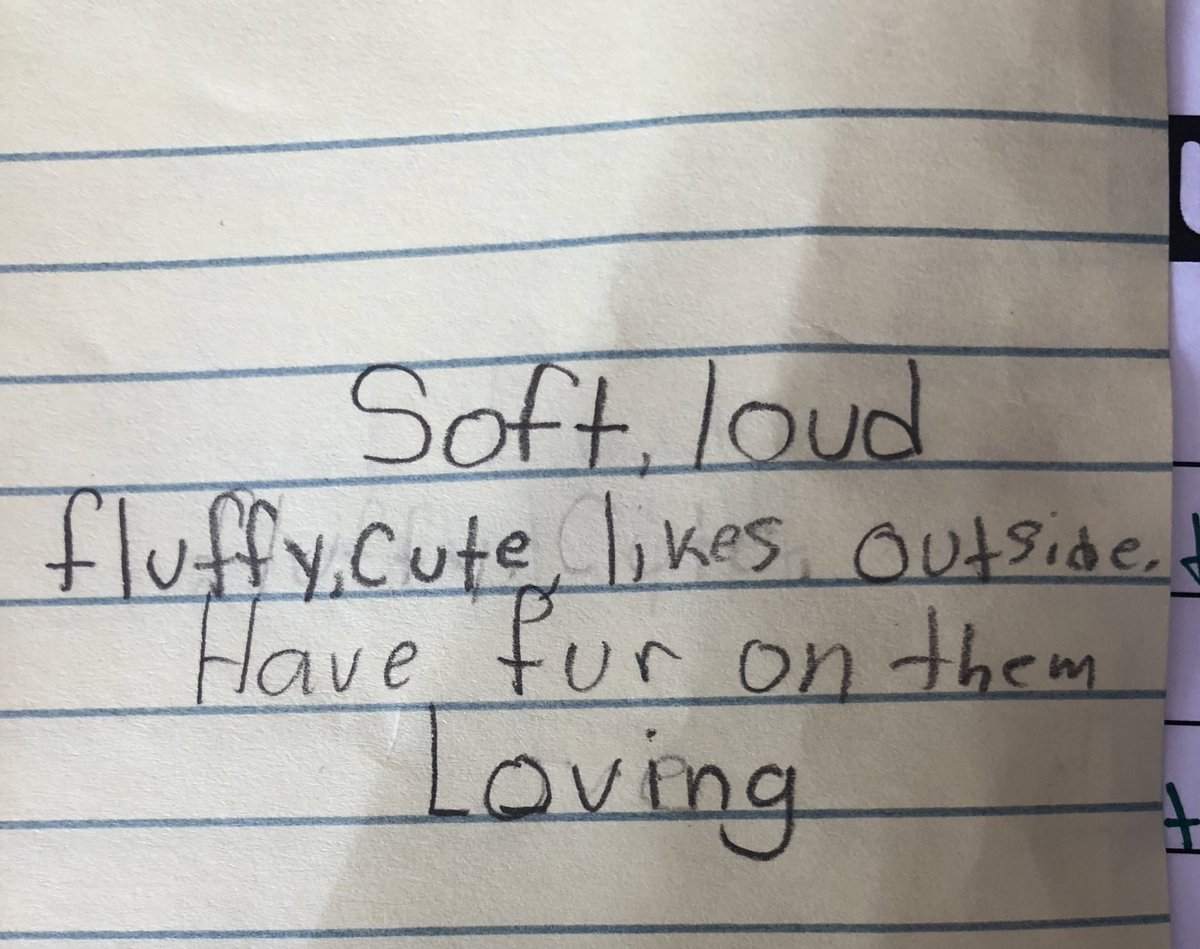 Soft, loud
fluffy, cute, likes outside.
Have fur on them
Loving